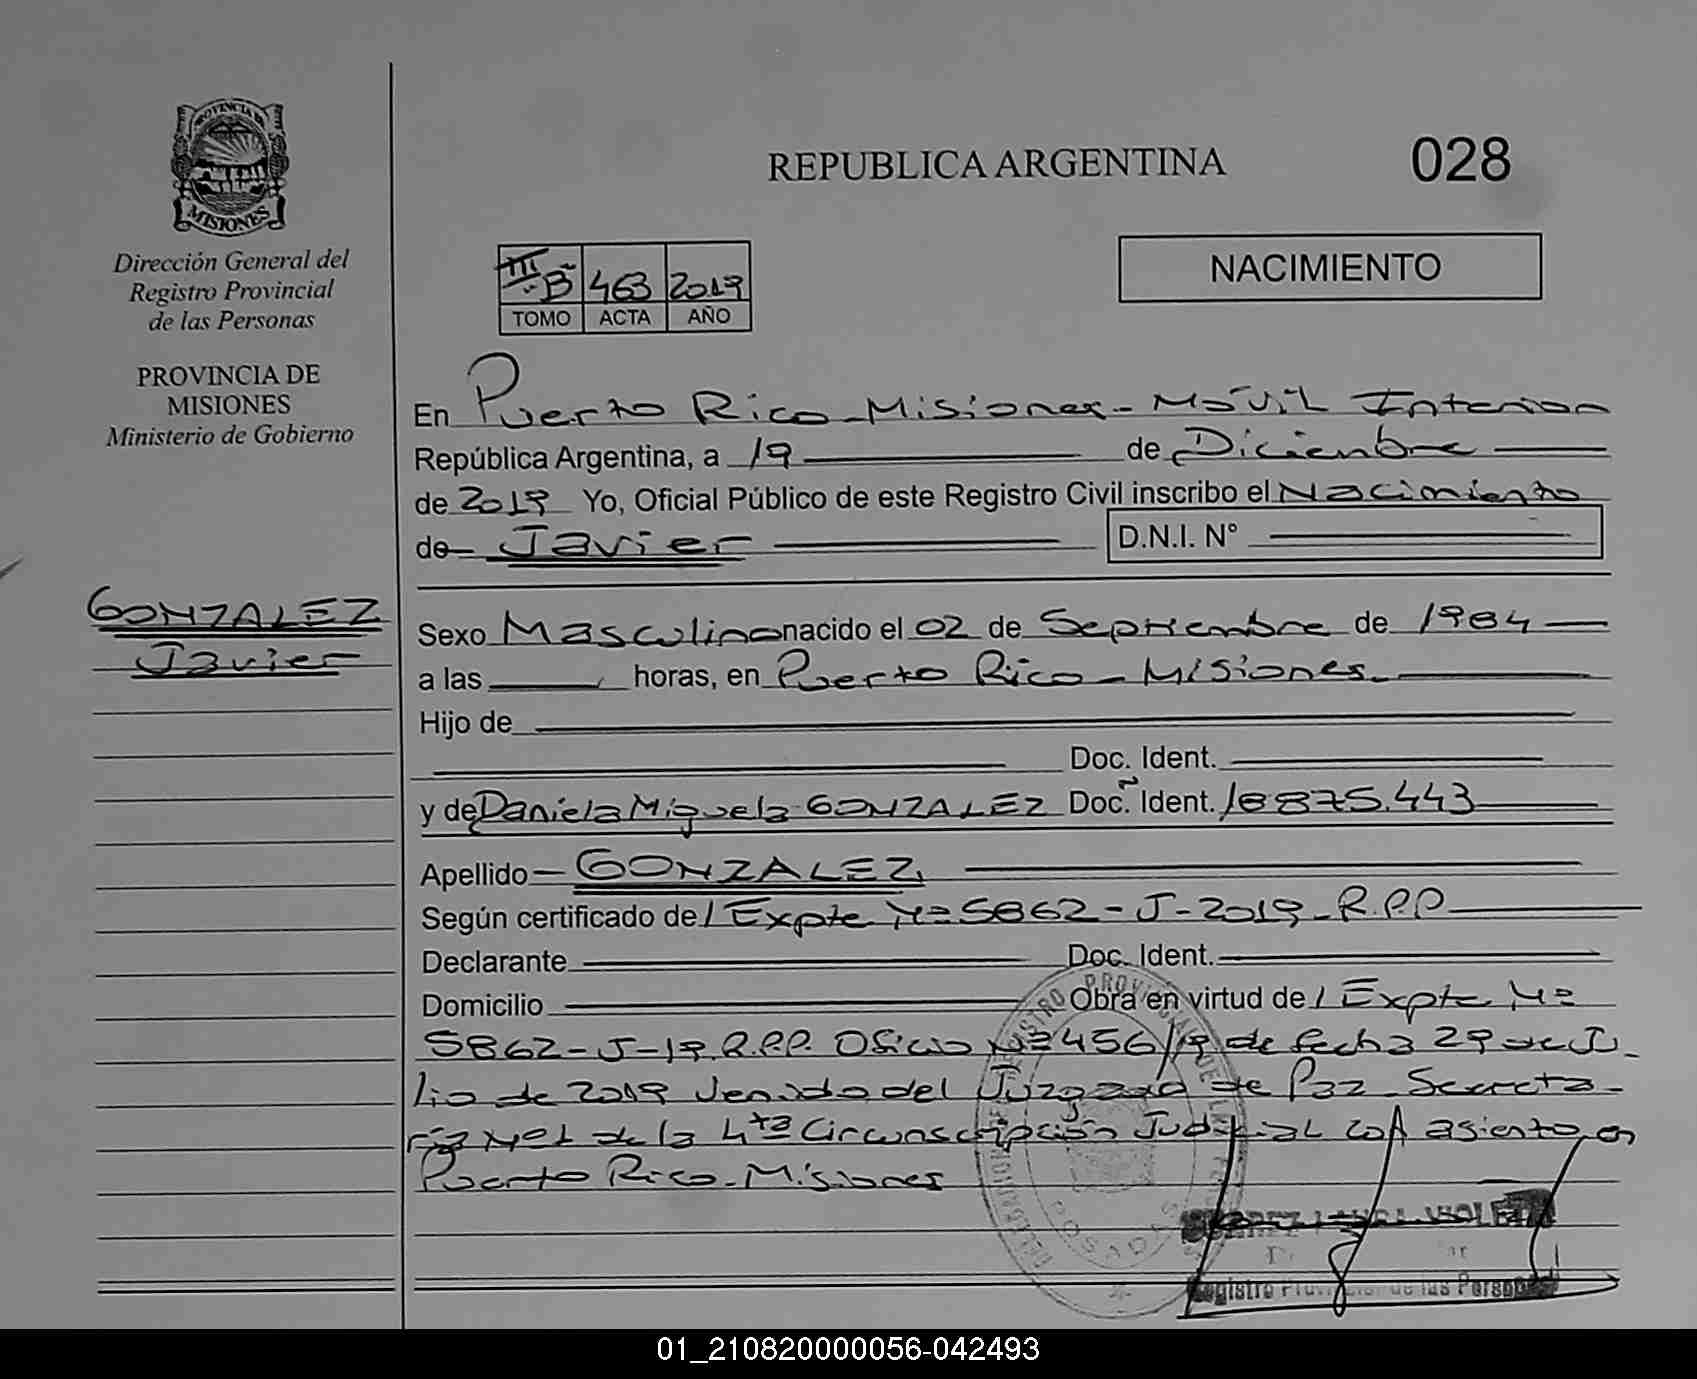 PROVINCIA DE
MISIONES
Dirección General del
Registro Provincial
de las Personas
PROVINCIA DE
MISIONES
Ministerio de Gobierno
REPUBLICA ARGENTINA
028
III B 463 2019
TOMO ACTA AÑO
NACIMIENTO
En Puerto Rico - Misiones - Móvil Interior
República Argentina, a 19 de Diciembre
de 2019 Yo, Oficial Público de este Registro Civil inscribo el Nacimiento
de Javier D.N.I. N°
GONZALEZ
Javier
Sexo Masculino nacido el 02 de Septiembre de 1984
a las horas, en Puerto Rico - Misiones.
Hijo de
Doc. Ident.
y de Daniela Miguela GONZALEZ Doc. Ident. 18875.443
Apellido GONZALEZ
Según certificado de / Expte Nº 5862-J-2019-R.P.P
Declarante Doc. Ident.
Domicilio Obra en virtud de / Expte Nº
5862-J-19.R.P.P. Oficio Nº 456/19 de fecha 29 de Ju-
lio de 2019 venido del Juzgado de Paz - Secreta-
ría Nº1 de la 4ta Circunscripción Judicial con asiento en
Puerto Rico - Misiones
POSADAS
Registro Provincial de las Personas
01_210820000056-042493